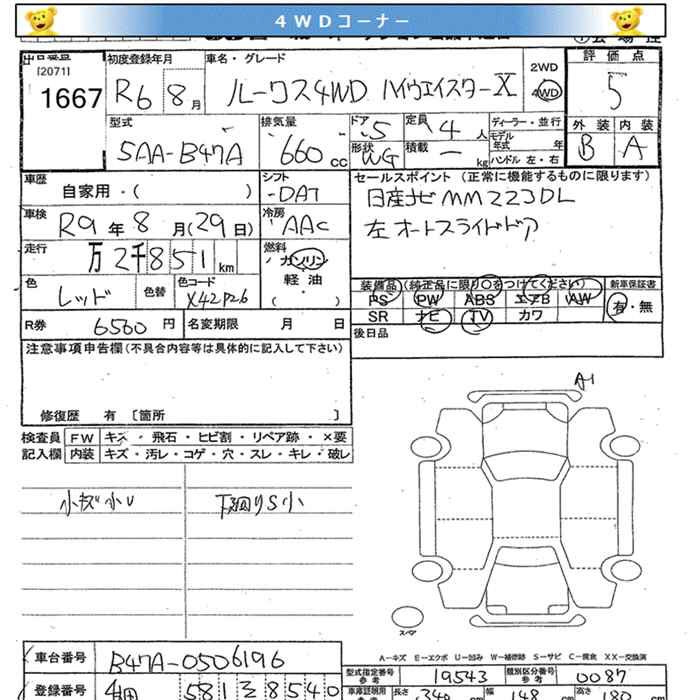 4WDコーナー
出品番号
[2071]
1667
初度登録年月
R6 8月
車名・グレード
ルークス4WD ハイウェイスターX
2WD
4WD
評価点
5
型式
5AA-B47A
排気量
660cc
ドア
5
定員
4人
形状
WG
積載
ー kg
ディーラー・並行
モデル年式 年
ハンドル 左・右
外装
B
内装
A
車歴
自家用・( )
シフト
DAT
セールスポイント (正常に機能するものに限ります)
日産ナビ MM223DL
左オートスライドドア
車検
R9年8月(29日)
冷房
AAC
走行
万2千851km
燃料
ガソリン
軽油
( )
色
レッド
色替
色コード
X42P26
装備品(純正品に限り○をつけてください)
PS PW ABS エアB AW
SR ナビ TV カワ
新車保証書
有・無
R券
6560円
名変期限 月 日
後日品
注意事項申告欄(不具合内容等は具体的に記入して下さい)
修復歴 有〔箇所 〕
検査員記入欄
FW キズ・飛石・ヒビ割・リペア跡・×要
内装 キズ・汚レ・コゲ・穴・スレ・キレ・破レ
小キズ小U
下廻りS小
A1
スペア
A-キズ E-エクボ U-凹み W-補修跡 S-サビ C-腐食 XX-交換済
車台番号
B47A-0506196
型式指定番号
参考
19543
類別区分番号
参考
0087
登録番号
581
8540
長さ
幅
148
高さ